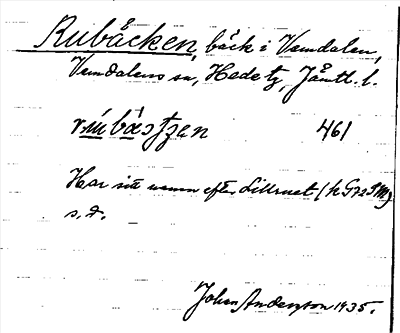 Rubäcken, bäck i Vemdalen,
Vemdalens sn, Hede tg, Jämtl. l.
461
Har sitt namn efter Lillruet
s. d.
John Andersson 1935.